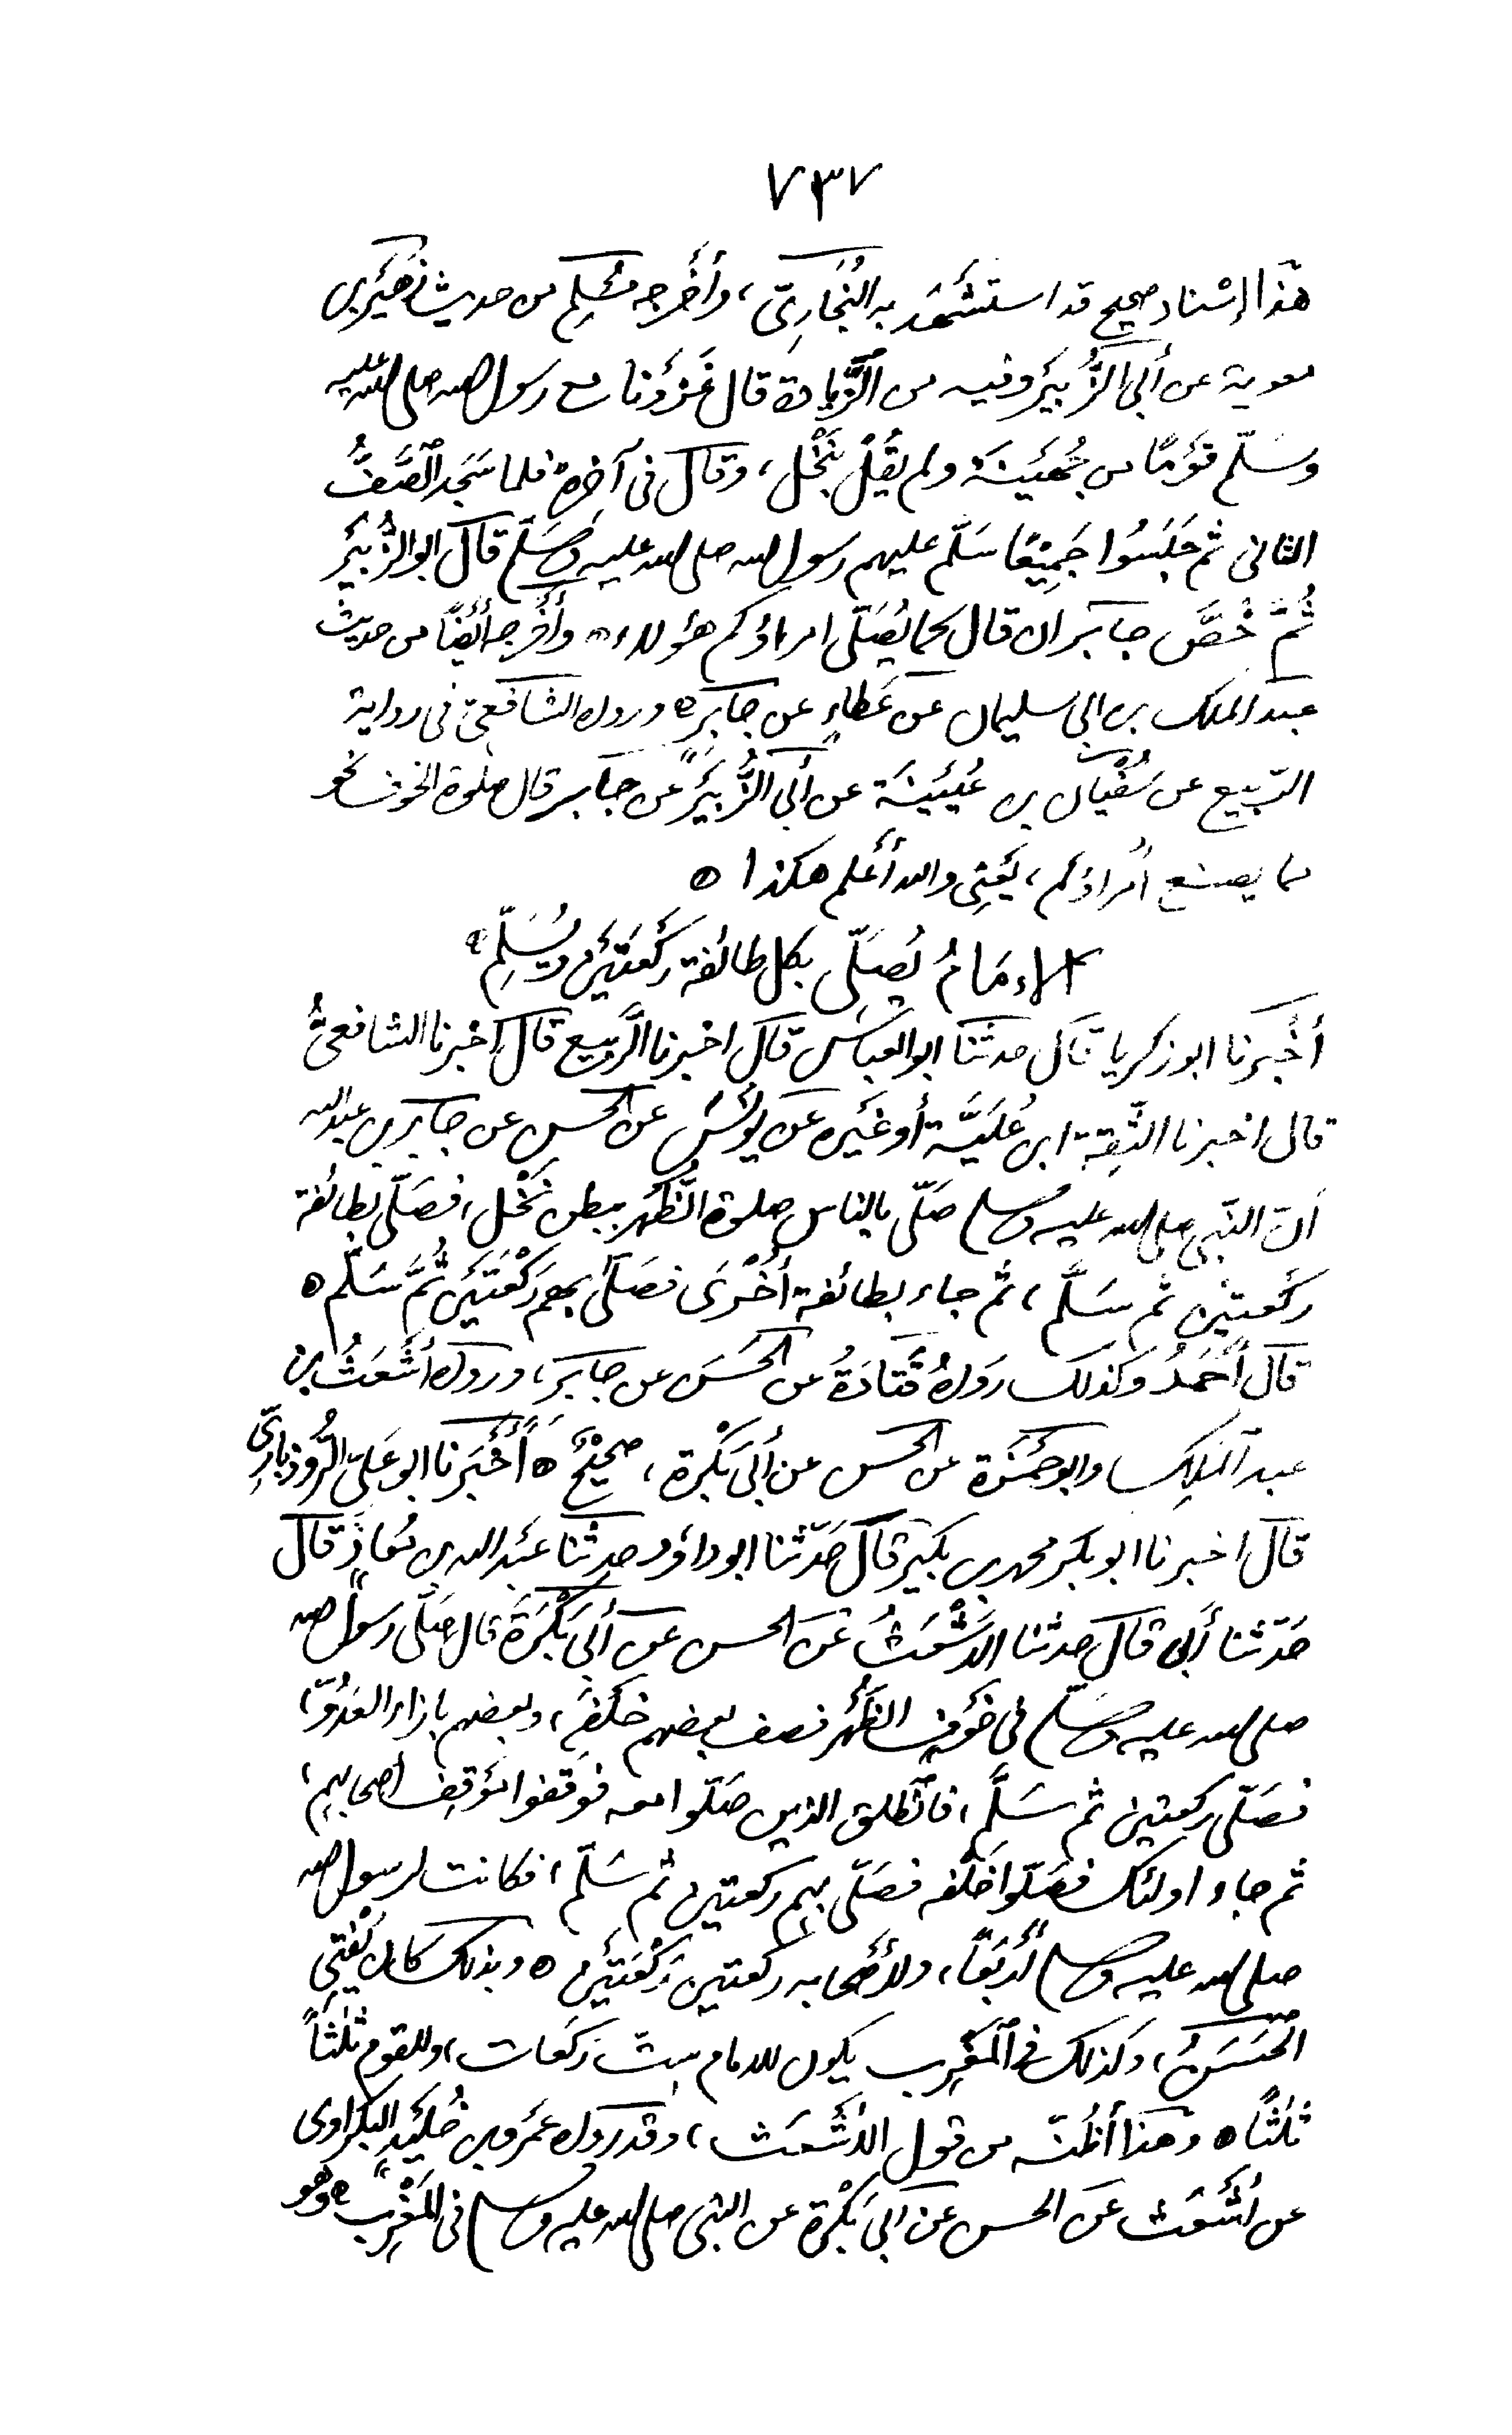 ٧٣٧
هٰذَا إسْناد صحيح قد استَشْهَد به البُخَارِيّ، وأَخْرجه مُسْلِم من حديث زُهَيْربن
معوية عن أَبي الزُّبَيْر وفيه من الزِّيادة قال غَزَوْنا مع رسول الله صلى الله عليه
وسَلّم قَوْمًا من جُهَيْنَة ولم يَقُلْ بنَخْل، وقال فى آخره فلما سَجَد الصَّفُّ
الثانى ثم جَلَسُوا جَمِيْعًا سَلّم عليهم رسول الله صلى الله عليه وسَلّم قال ابو الزُّبَيْر
ثُمَّ خَصَّ جابر ان قال كما يُصَلّى امراؤكم هٰؤلاء ه وأَخْرجه أَيْضًا من حديث
عبد الملك بن ابى سليمان عن عَطاءٍ عن جابر ه ورواه الشافعىّ فى رواية
الرّبيع عن سُفْيَان بن عُيَيْنَة عن أَبى الزُّبَيْر عن جابر قال صلٰوة الخوف نحو
مما يصنع أُمراؤكم، يَعْنِى والله أَعْلم هكذا ه
الإمَامُ يُصَلِّى بكل طائفة رَكْعَتَيْن ويُسَلِّم ه
أَخْبَرنا ابو زكريا قال حدثنا ابو العباس قال اخبرنا الرَّبيع قال اخبرنا الشافعىُّ
قال اخبرنا الثِّقِة ابن عُلَيَّة أو غَيْره عن يُونُس عن الحسن عن جابربن عبدالله
أن النَّبى صلى الله عليه وسلم صَلّى بالناس صلوة الظُّهْر ببطن نَخْل، فصَلّى بطائفة
ركْعتين ثم سَلَّم، ثم جاء بطائفة أُخْرَى فصَلّى بهم رَكْعَتَيْن ثُمَّ سَلَّم ه
قال أَحْمَدُ وكذلك رَوَاهُ قَتَادَةُ عن الحَسَن عن جابر، ورواه أَشْعَثُ بن
عبد الملِك وابو حَمْزة عن الحسن عن أَبى بَكْرة، صحيحٌ ه أَخْبَرنا ابو عَلىّ الرُّوذبارِىّ
قال اخبرنا ابو بكر محمدبن بكير قال حَدّثنا ابو داوٗد حدثنا عُبَيْد الله بن مُعاذ قال
حَدّثنا أَبى قال حدثنا الأشْعَثُ عن الحسن عن أَبى بَكْرَةَ قال صَلّى رسول الله
صلى الله عليه وسَلّم فى خَوْفٍ الظُّهْر فصف بعضهم خَلْفَه، وبعضهم بإزاء العَدُوّ،
فصَلّى ركعتين ثم سَلَّم، فانْطلق الذين صَلّوا معه فوَقَفوا مَوْقِف أصحابهم،
ثم جاء اولئك فصَلّوا خَلْفه فصَلّى بهم ركعتين ثم سَلّم، فكانت لرسول الله
صلى الله عليه وسلم أَرْبَعًا، ولأَصْحابه ركعتين رَكْعَتَيْن ه وبذلك كان يُفْتِى
الحَسَنُ، وكذلك فى المَغْرِب يكون للامام سِتّ رَكَعات، وللقوم ثَلٰثًا
ثَلٰثًا ه وهٰذا أَظُنّه من قول الأَشْعَث، وقد رواه عَمْروبن خُلَيْد البكراوى
عن أَشْعَث عن الحسن عن ابى بَكْرة عن النبى صلى الله عليه وسلم فى المَغْرِب ه وهو